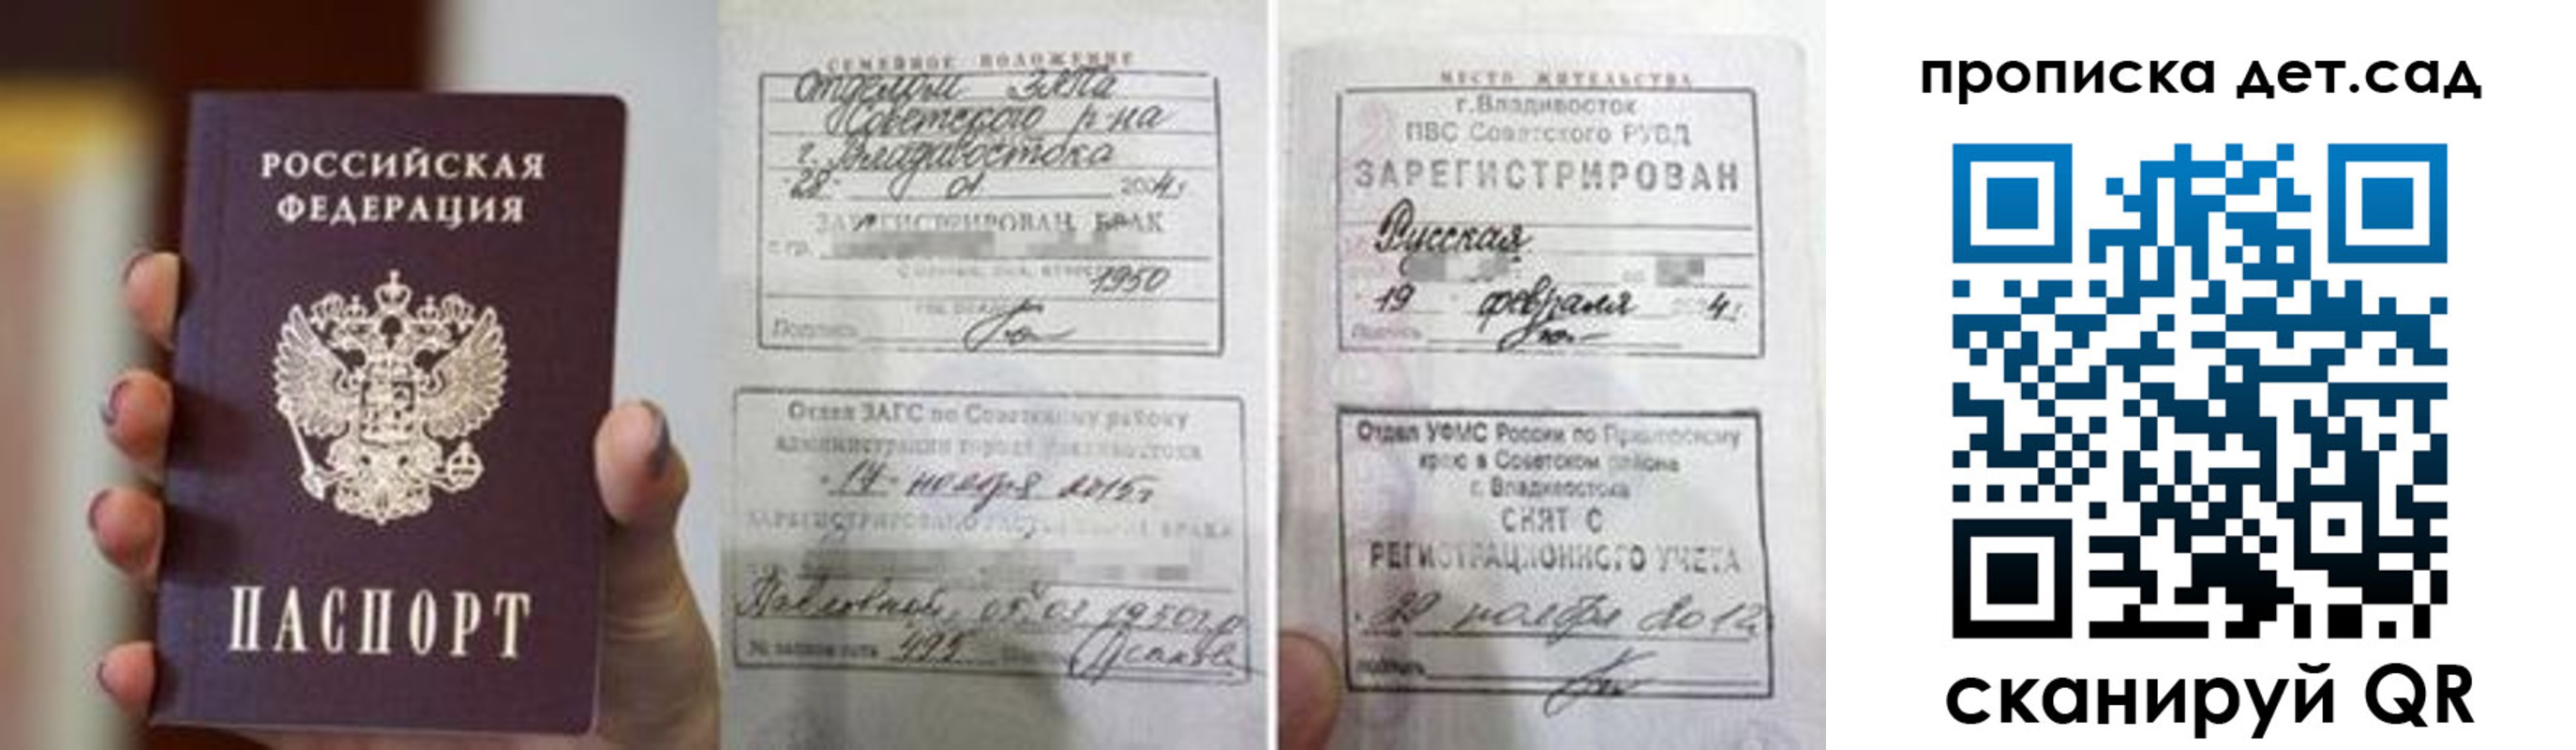 РОССИЙСКАЯ
ФЕДЕРАЦИЯ
ПАСПОРТ
СЕМЕЙНОЕ ПОЛОЖЕНИЕ
Отделом ЗАГСа
Советского р-на
г. Владивостока
"28" 01 2004 г.
ЗАРЕГИСТРИРОВАН БРАК
с гр.
1950
Подпись
Отдел ЗАГС по Советскому району
администрации города Владивостока
"17" ноября 2015 г
Павловной, 05.03.1950 г.р
№ записи акта 495
МЕСТО ЖИТЕЛЬСТВА
г.Владивосток
ПВС Советского РУВД
ЗАРЕГИСТРИРОВАН
Русская
19 февраля 4 г.
Подпись
Отдел УФМС России по Приморскому
краю в Советском районе
г. Владивостока
СНЯТ С
РЕГИСТРАЦИОННОГО УЧЕТА
ноября 2012
подпись
прописка дет.сад
сканируй QR